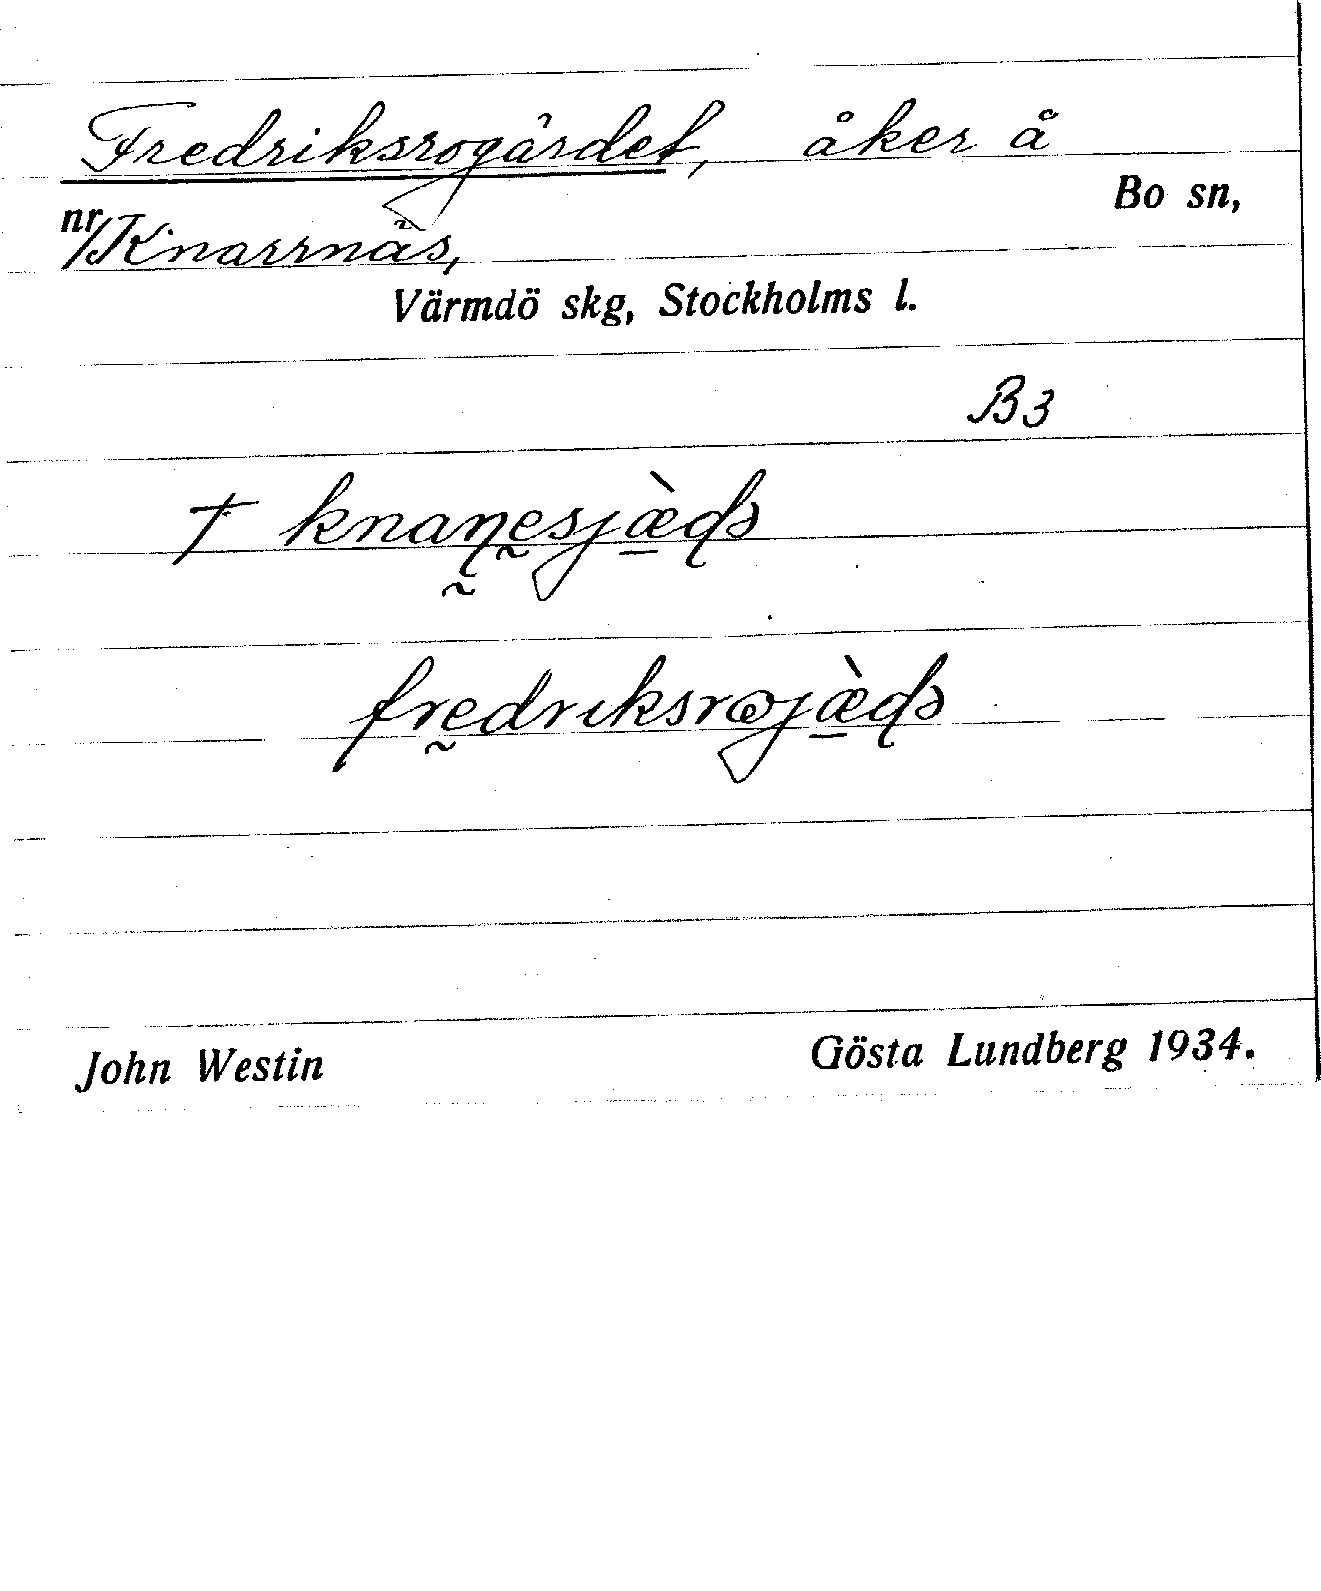 Fredriksrogärdet, åker å
Bo sn,
nr/Knarrnäs,
Värmdö skg, Stockholms l.
B3
† knaṇe̬sjæ̱̀ḍə
fre̬drıksrɷjæ̱̀ḍə
John Westin
Gösta Lundberg 1934.